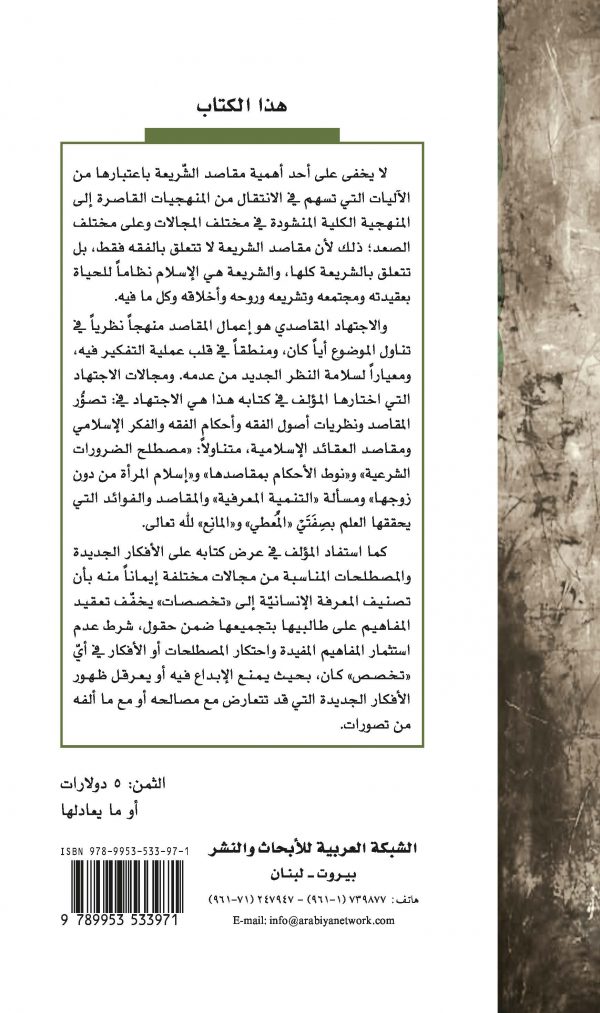 هذا الكتاب
لا يخفى على أحد أهمية مقاصد الشّريعة باعتبارها من
الآليات التي تسهم في الانتقال من المنهجيات القاصرة إلى
المنهجية الكلية المنشودة في مختلف المجالات وعلى مختلف
الصعد؛ ذلك لأن مقاصد الشريعة لا تتعلق بالفقه فقط، بل
تتعلق بالشريعة كلها، والشريعة هي الإسلام نظاماً للحياة
بعقيدته ومجتمعه وتشريعه وروحه وأخلاقه وكل ما فيه.
والاجتهاد المقاصدي هو إعمال المقاصد منهجاً نظرياً في
تناول الموضوع أياً كان، ومنطقاً في قلب عملية التفكير فيه،
ومعياراً لسلامة النظر الجديد من عدمه. ومجالات الاجتهاد
التي اختارها المؤلف في كتابه هذا هي الاجتهاد في: تصوُّر
المقاصد ونظريات أصول الفقه وأحكام الفقه والفكر الإسلامي
ومقاصد العقائد الإسلامية، متناولاً: «مصطلح الضرورات
الشرعية» و«نوط الأحكام بمقاصدها» و«إسلام المرأة من دون
زوجها» ومسألة «التنمية المعرفية» والمقاصد والفوائد التي
يحققها العلم بصِفَتَيْ «المُعطي» و«المانِع» لله تعالى.
كما استفاد المؤلف في عرض كتابه على الأفكار الجديدة
والمصطلحات المناسبة من مجالات مختلفة إيماناً منه بأن
تصنيف المعرفة الإنسانيّة إلى «تخصصات» يخفّف تعقيد
المفاهيم على طالبيها بتجميعها ضمن حقول، شرط عدم
استثمار المفاهيم المفيدة واحتكار المصطلحات أو الأفكار في أيّ
«تخصص» كان، بحيث يمنع الإبداع فيه أو يعرقل ظهور
الأفكار الجديدة التي قد تتعارض مع مصالحه أو مع ما ألفه
من تصورات.
الثمن: ٥ دولارات
أو ما يعادلها
الشبكة العربية للأبحاث والنشر
بيروت - لبنان
هاتف: ٧٣٩٨٧٧ (١-٩٦١) - ٢٤٧٩٤٧ (٧١-٩٦١)
E-mail: info@arabiyanetwork.com
ISBN 978-9953-533-97-1
9 789953 533971